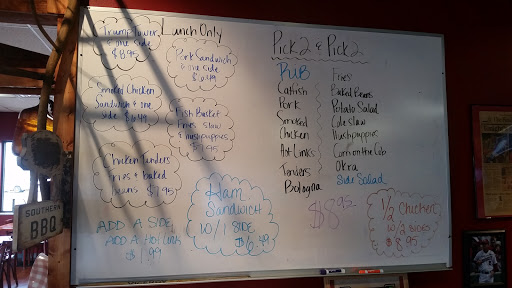 Lunch Only
Trump Tower
& one side
$8.95
Pork Sandwich
& one side
$6.49
Smoked Chicken
Sandwich & one
side $6.49
Fish Basket
Fries, slaw
& hushpuppies
$7.95
Chicken Tenders
Fries & baked
beans $7.95
Ham
Sandwich
w/ 1 side
$6.49
ADD A SIDE
ADD A Hot Link
$1.99
Pick 2 & Pick 2
RUB
Catfish
Pork
Smoked
Chicken
Hot Links
Tenders
Bologna
Fries
Baked Beans
Potato Salad
Cole slaw
Hushpuppies
Corn on the Cob
Okra
Side Salad
$8.95
1/2 Chicken
w/ 2 sides
$8.95
SOUTHERN
BBQ